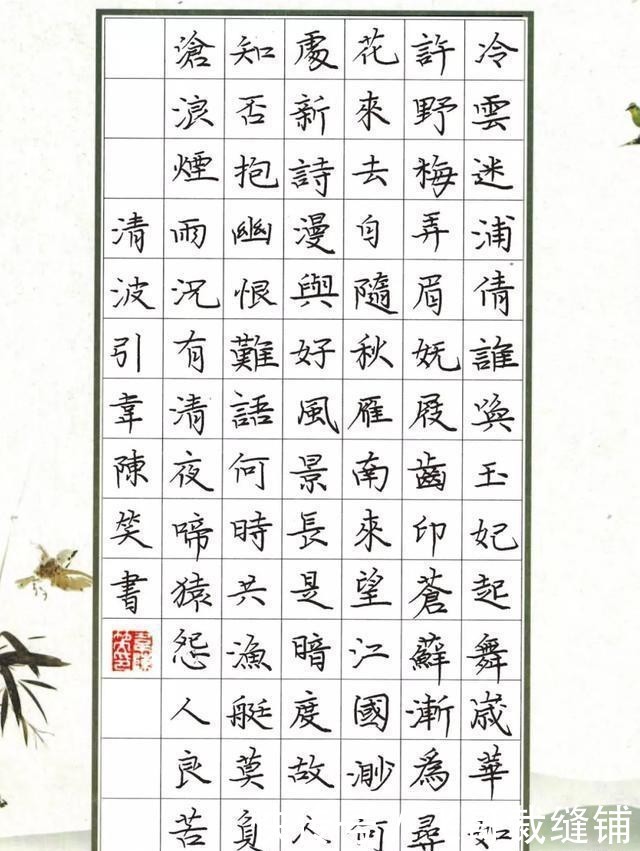 冷雲迷浦倩誰喚玉妃起舞歲華如
許野梅弄眉妩屐齒印蒼蘚漸為尋
花來去自隨秋雁南來望江國渺何
處新詩漫與好風景長是暗度故人
知否抱幽恨難語何時共漁艇莫負
滄浪煙雨況有清夜啼猿怨人良苦
清波引韋陳笑書
裁缝铺